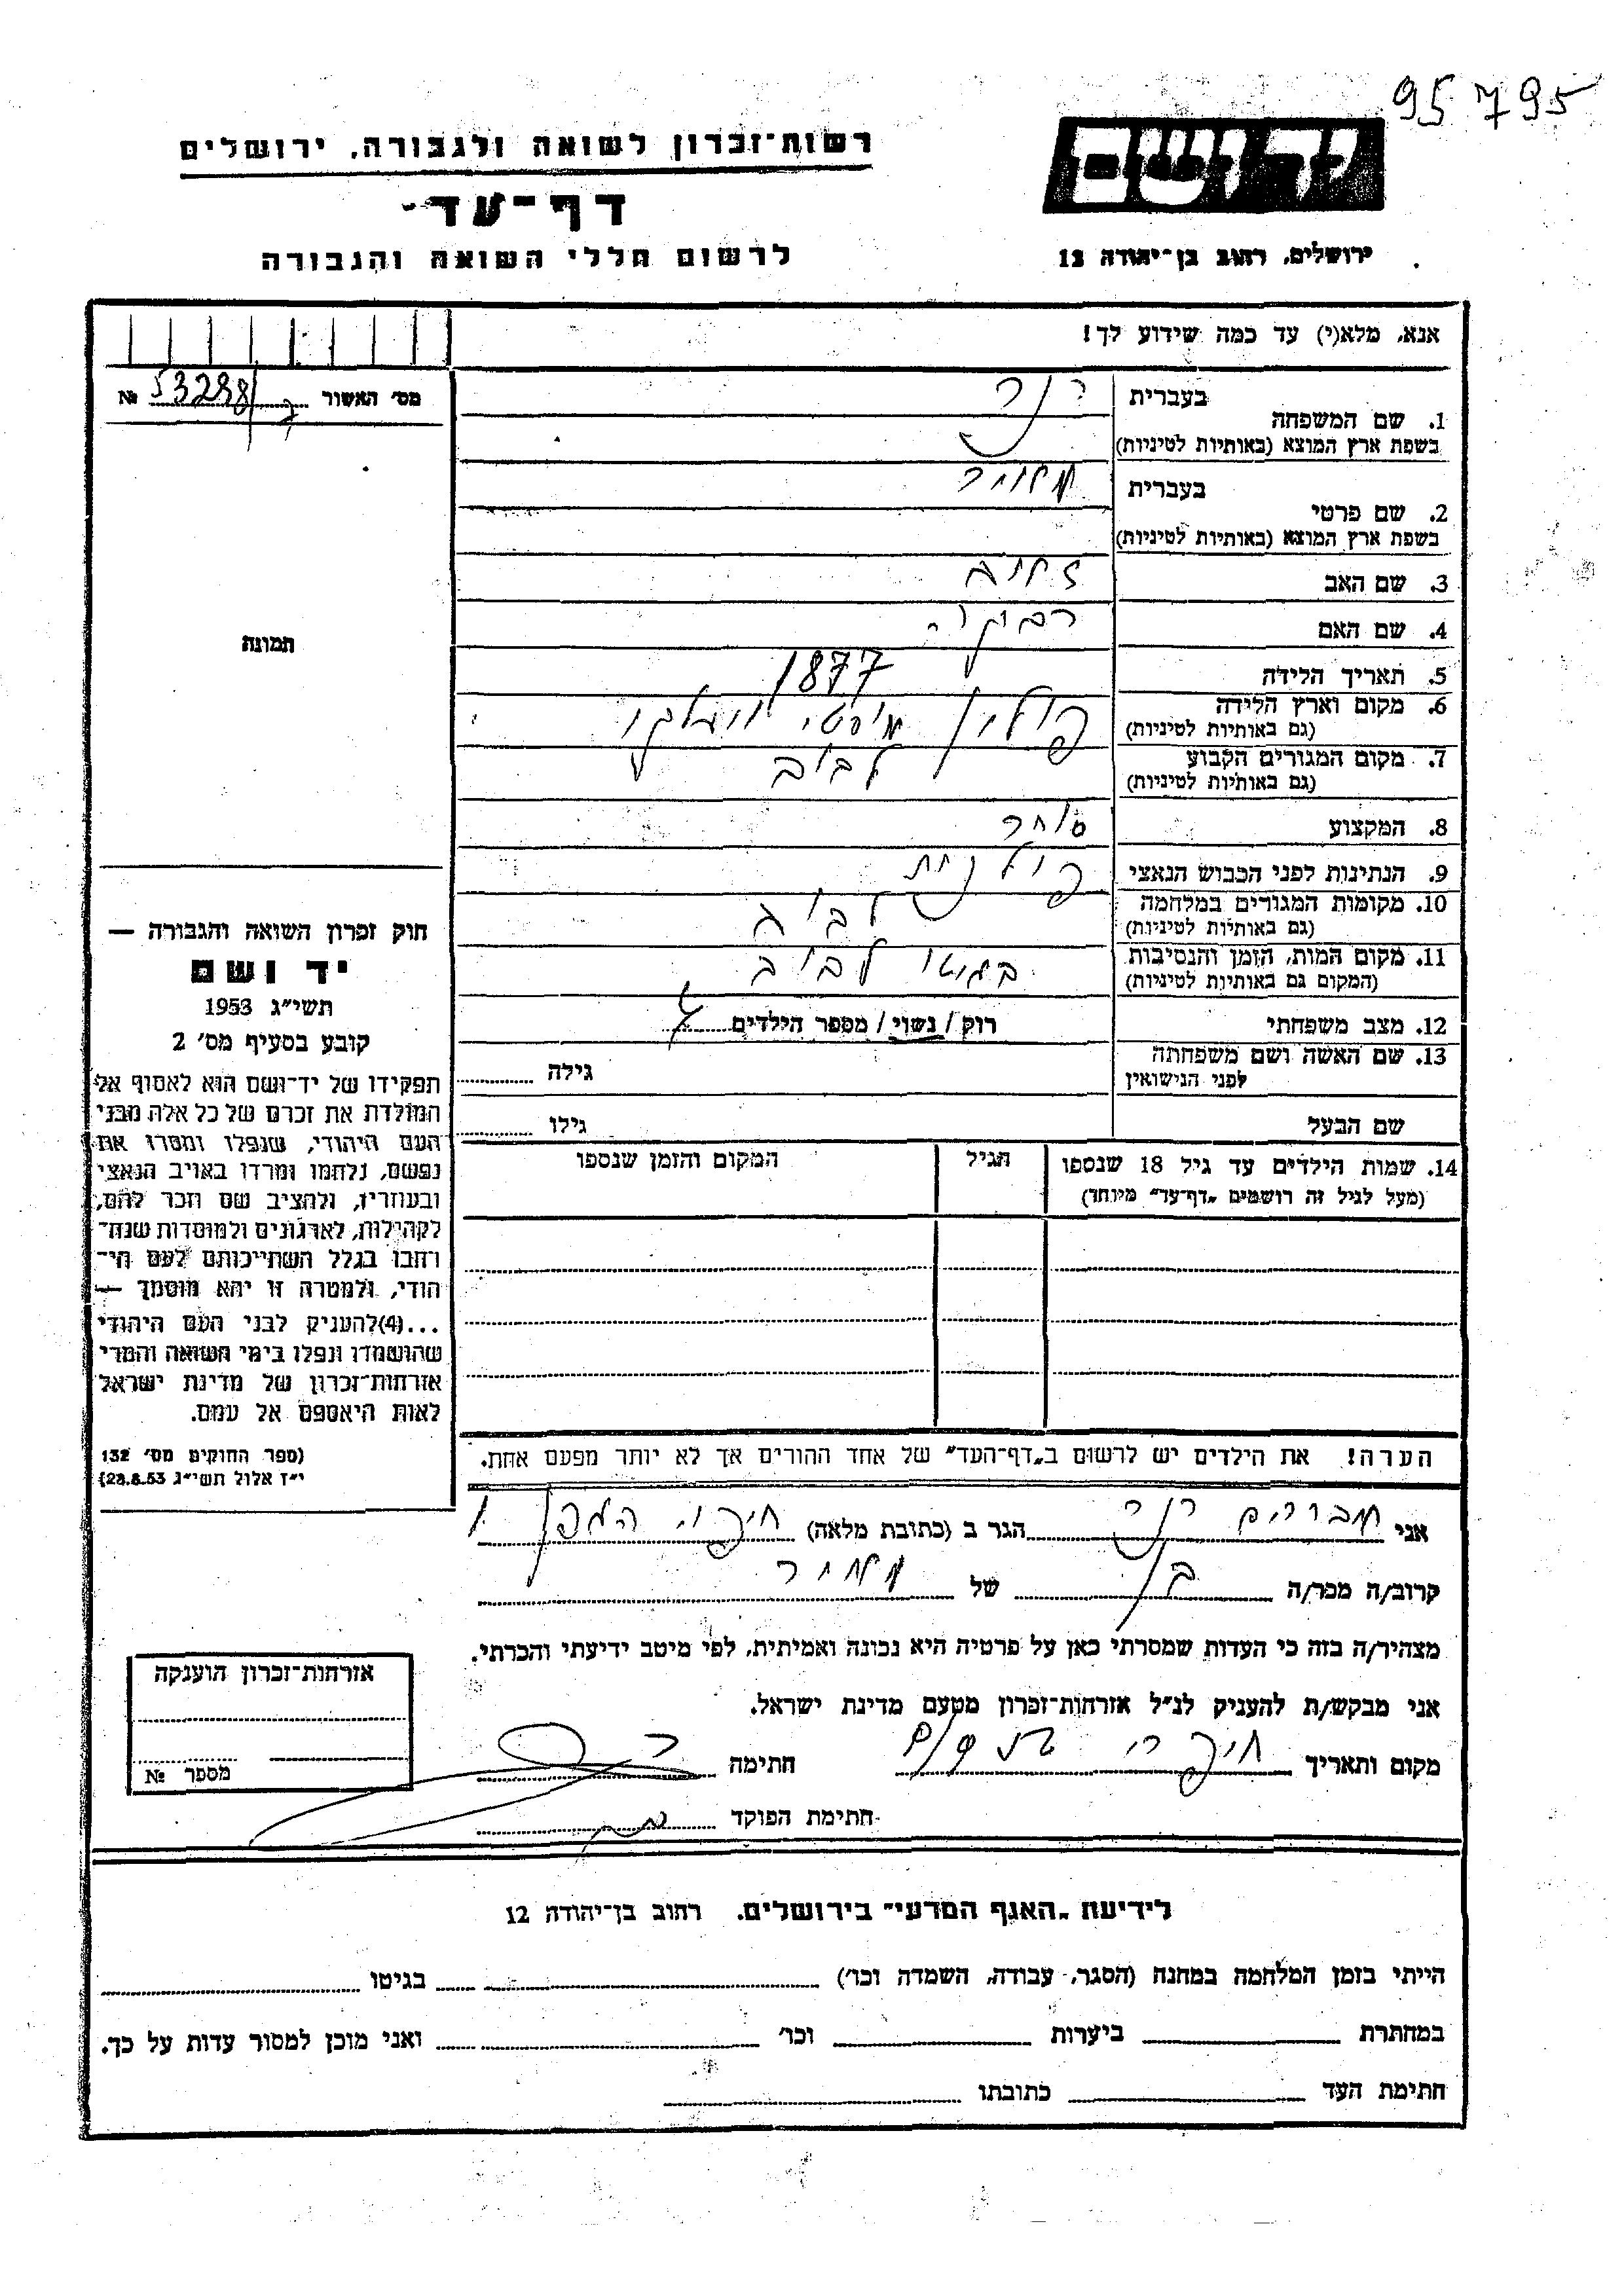 95795
יד ושם
רשות־זכרון לשואה ולגבורה, ירושלים
דף־עד
לרשום חללי השואה והגבורה
ירושלים, רחוב בן־יהודה 12
אנא, מלא(י) עד כמה שידוע לך!
מס׳ האשור № 53298
1. שם המשפחה
בעברית
בשפת ארץ המוצא (באותיות לטיניות)
2. שם פרטי
בעברית
בשפת ארץ המוצא (באותיות לטיניות)
3. שם האב
4. שם האם רבקה
5. תאריך הלידה 1877
6. מקום וארץ הלידה פולין
(גם באותיות לטיניות)
7. מקום המגורים הקבוע לבוב
(גם באותיות לטיניות)
8. המקצוע סוחר
9. הנתינות לפני הכבוש הנאצי פולנית
10. מקומות המגורים במלחמה לבוב
(גם באותיות לטיניות)
11. מקום המות, הזמן והנסיבות בגיטו לבוב
(המקום גם באותיות לטיניות)
12. מצב משפחתי רוק / נשוי / מספר הילדים
13. שם האשה ושם משפחתה
לפני הנישואין
גילה
שם הבעל גילו
14. שמות הילדים עד גיל 18 שנספו הגיל המקום והזמן שנספו
(מעל לגיל זה רושמים „דף־עד״ מיוחד)
הערה! את הילדים יש לרשום ב„דף־העד״ של אחד ההורים אך לא יותר מפעם אחת.
תמונה
חוק זכרון השואה והגבורה —
יד ושם
תשי״ג 1953
קובע בסעיף מס׳ 2
תפקידו של יד־ושם הוא לאסוף אל
המולדת את זכרם של כל אלה מבני
העם היהודי, שנפלו ומסרו את
נפשם, נלחמו ומרדו באויב הנאצי
ובעוזריו, ולהציב שם וזכר להם,
לקהילות, לארגונים ולמוסדות שנח־
רחבו בגלל השתייכותם לעם הי־
הודי, ולמטרה זו יהא מוסמך —
...(4)להעניק לבני העם היהודי
שהושמדו ונפלו בימי השואה והמרי
אזרחות־זכרון של מדינת ישראל
לאות היאספם אל עמם.
(ספר החוקים מס׳ 132
י״ז אלול תשי״ג 28.8.53)
אני אברהם הגר ב (כתובת מלאה) חיפה
קרוב/ה מכר/ה בן של
מצהיר/ה בזה כי העדות שמסרתי כאן על פרטיה היא נכונה ואמיתית, לפי מיטב ידיעתי והכרתי.
אני מבקש/ת להעניק לנ״ל אזרחות־זכרון מטעם מדינת ישראל.
מקום ותאריך חיפה חתימה
חתימת הפוקד
אזרחות־זכרון הוענקה
מספר №
לידיעת „האגף המדעי״ בירושלים, רחוב בן־יהודה 12
הייתי בזמן המלחמה במחנה (הסגר, עבודה, השמדה וכו׳) בגיטו
במחתרת ביערות וכו׳ ואני מוכן למסור עדות על כך.
חתימת העד כתובתו